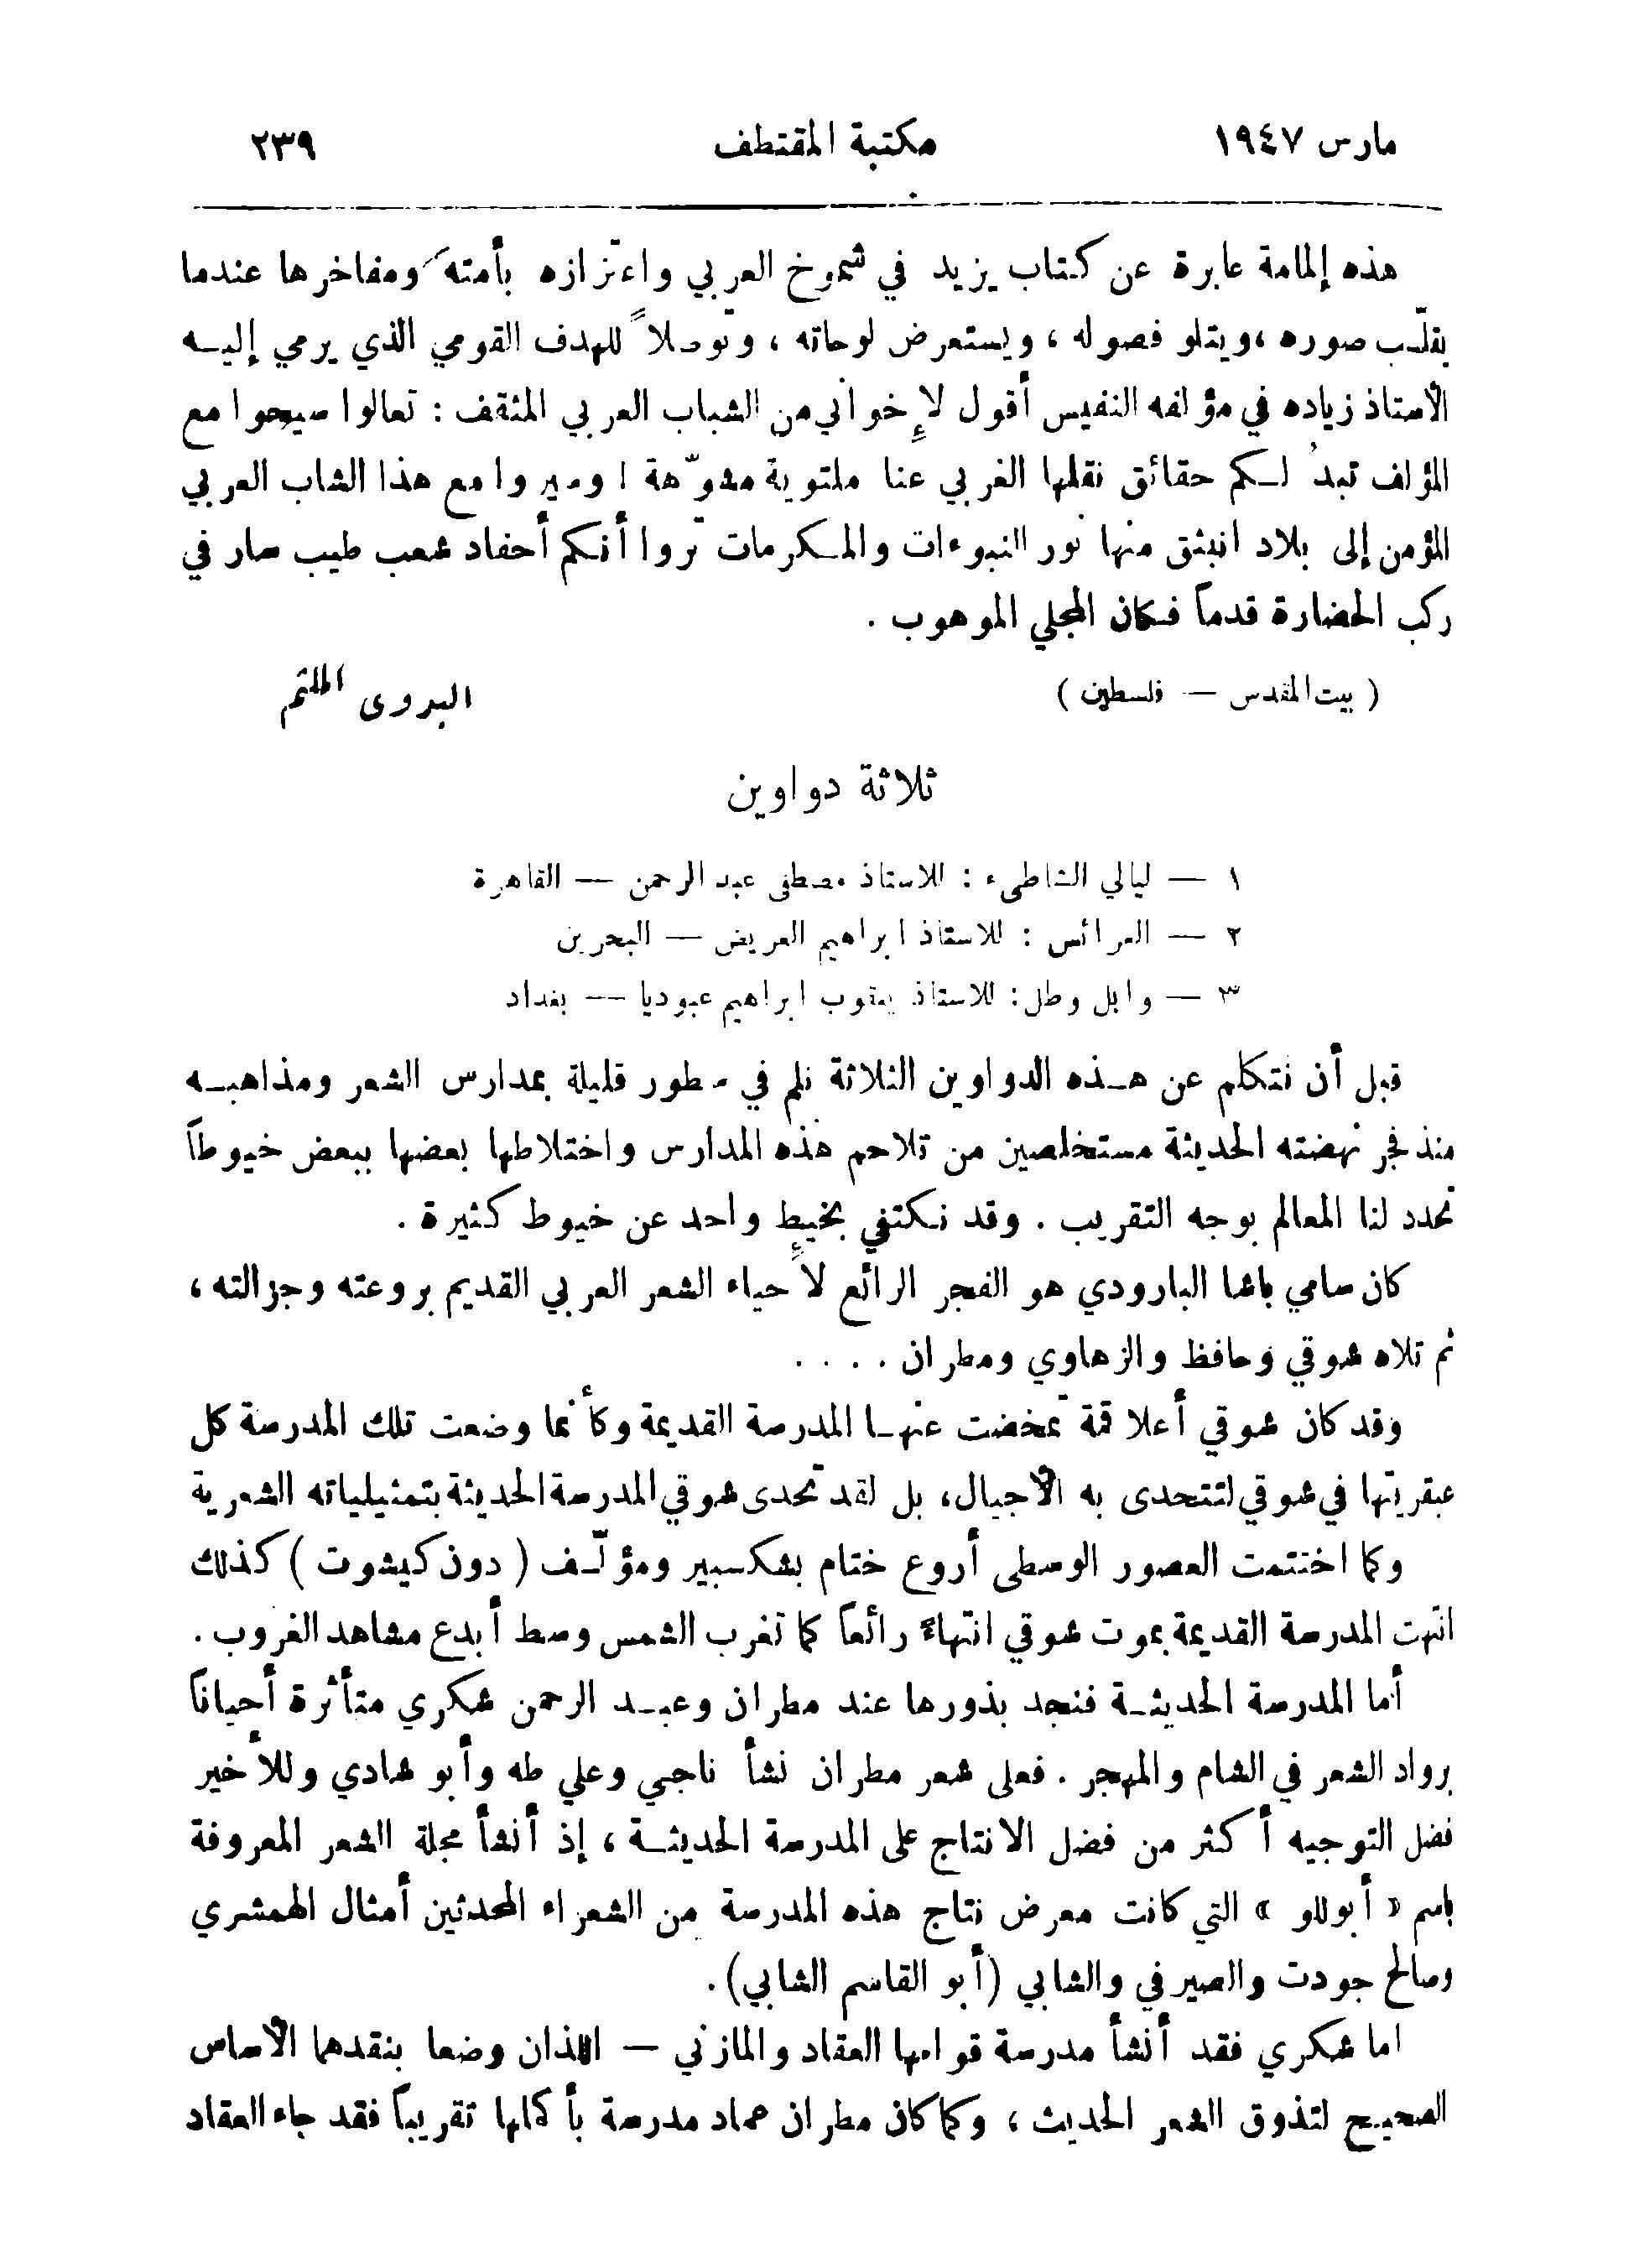 مارس ١٩٤٧
مكتبة المقتطف
٢٣٩
هذه إلمامة عابرة عن كتاب يزيد في شموخ العربي واعتزازه بأمته ومفاخرها عندما
يقلّب صوره ، ويتلو فصوله ، ويستعرض لوحاته ، وتوصلاً للهدف القومي الذي يرمي إليه
الأستاذ زياده في مؤلفه النفيس أقول لإخواني من الشباب العربي المثقف : تعالوا سيحوا مع
المؤلف تبدُ لكم حقائق نقلها الغربي عنا ملتوية مشوّهة ! وسيروا مع هذا الشاب العربي
المؤمن إلى بلاد انبثق منها نور النبوءات والمكرمات تروا أنكم أحفاد شعب طيب سار في
ركب الحضارة قدماً فكان المجلي الموهوب .
( بيت المقدس — فلسطين )
البدوى الملثم
ثلاثة دواوين
١ — ليالي الشاطىء : للاستاذ مصطفى عبد الرحمن — القاهرة
٢ — العرائس : للاستاذ ابراهيم العريض — البحرين
٣ — وابل وطل : للاستاذ يعقوب ابراهيم عبوديا — بغداد
قبل أن نتكلم عن هذه الدواوين الثلاثة نلم في سطور قليلة بمدارس الشعر ومذاهبه
منذ فجر نهضته الحديثة مستخلصين من تلاحم هذه المدارس واختلاطها بعضها ببعض خيوطاً
تحدد لنا المعالم بوجه التقريب . وقد نكتفي بخيط واحد عن خيوط كثيرة .
كان سامي باشا البارودي هو الفجر الرائع لإحياء الشعر العربي القديم بروعته وجزالته ،
ثم تلاه شوقي وحافظ والزهاوي ومطران . . . .
وقد كان شوقي أعلا قمة تمخضت عنها المدرسة القديمة وكأنما وضعت تلك المدرسة كل
عبقريتها في شوقي لتتحدى به الأجيال، بل لقد تحدى شوقي المدرسة الحديثة بتمثيلياته الشعرية
وكما اختتمت العصور الوسطى أروع ختام بشكسبير ومؤلّف ( دون كيشوت ) كذلك
انتهت المدرسة القديمة بموت شوقي انتهاءً رائعاً كما تغرب الشمس وسط أبدع مشاهد الغروب .
أما المدرسة الحديثة فنجد بذورها عند مطران وعبد الرحمن شكري متأثرة أحياناً
برواد الشعر في الشام والمهجر . فعلى شعر مطران نشأ ناجي وعلي طه وأبو شادي وللأخير
فضل التوجيه أكثر من فضل الانتاج على المدرسة الحديثة ، إذ أنشأ مجلة الشعر المعروفة
باسم « أبوللو » التي كانت معرض نتاج هذه المدرسة من الشعراء المحدثين أمثال الهمشري
وصالح جودت والصيرفي والشابي (أبو القاسم الشابي) .
اما شكري فقد أنشأ مدرسة قوامها العقاد والمازني — اللذان وضعا بنقدهما الأساس
الصحيح لتذوق الشعر الحديث ، وكما كان مطران عماد مدرسة بأكملها تقريباً فقد جاء العقاد